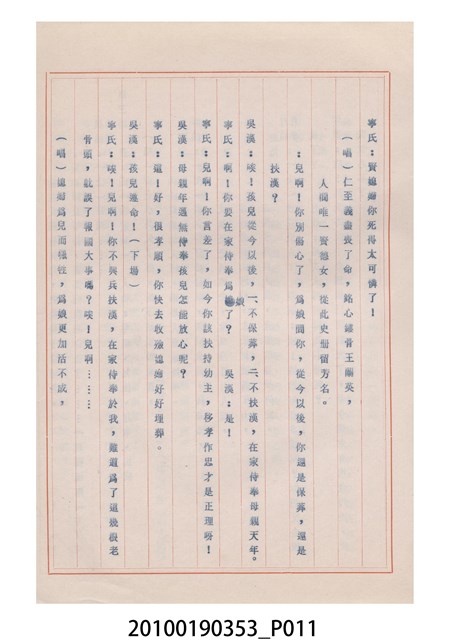 寧氏：賢媳婦你死得太可憐了！
（唱）仁至義盡喪了命，銘心鏤骨王蘭英，
人間唯一賢德女，從此史冊留芳名。
：兒啊！你別傷心了，為娘問你，從今以後，你還是保莽，還是
扶漢？
吳漢：唉！孩兒從今以後，一、不保莽，二、不扶漢，在家侍奉母親天年。
寧氏：啊！你要在家侍奉為娘了？　吳漢：是！
寧氏：兒啊！你言差了，如今你該扶持幼主，移孝作忠才是正理呀！
吳漢：母親年邁無侍奉孩兒怎能放心呢？
寧氏：這！好，很孝順，你快去收殮媳婦好好埋葬。
吳漢：孩兒遵命！（下場）
寧氏：唉！兒啊！你不興兵扶漢，在家侍奉於我，難道為了這幾根老
骨頭，耽誤了報國大事嗎？唉！兒啊………
（唱）媳婦為兒而犧牲，為娘更加活不成，
20100190353_P011